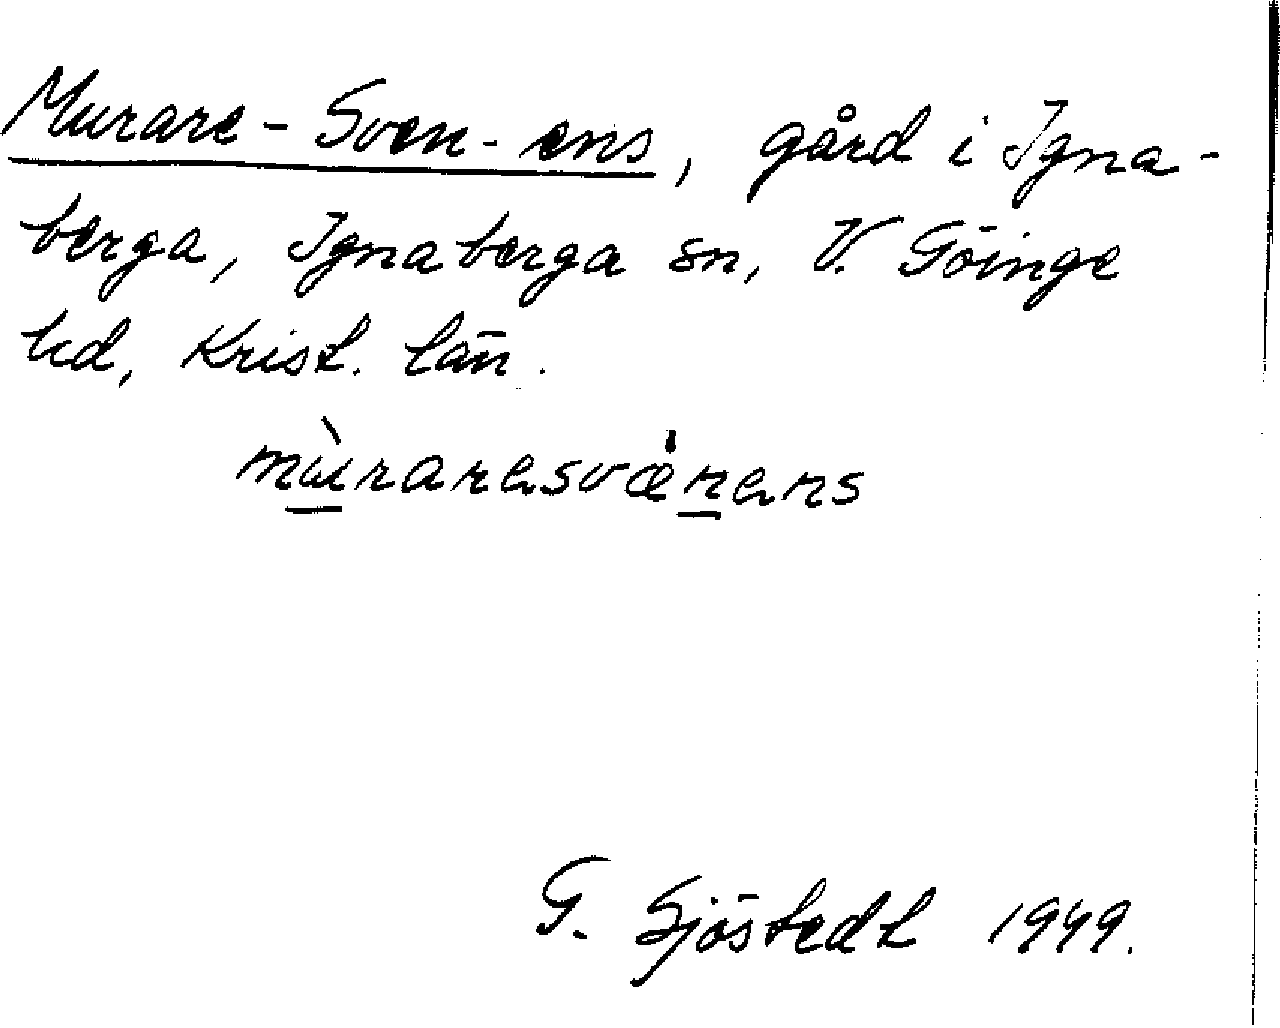 Murare-Sven-ens, gård i Igna-
berga, Ignaberga sn, V. Göinge
hd, Krist. län.
mùrarəsvænəns
G. Sjöstedt 1949.